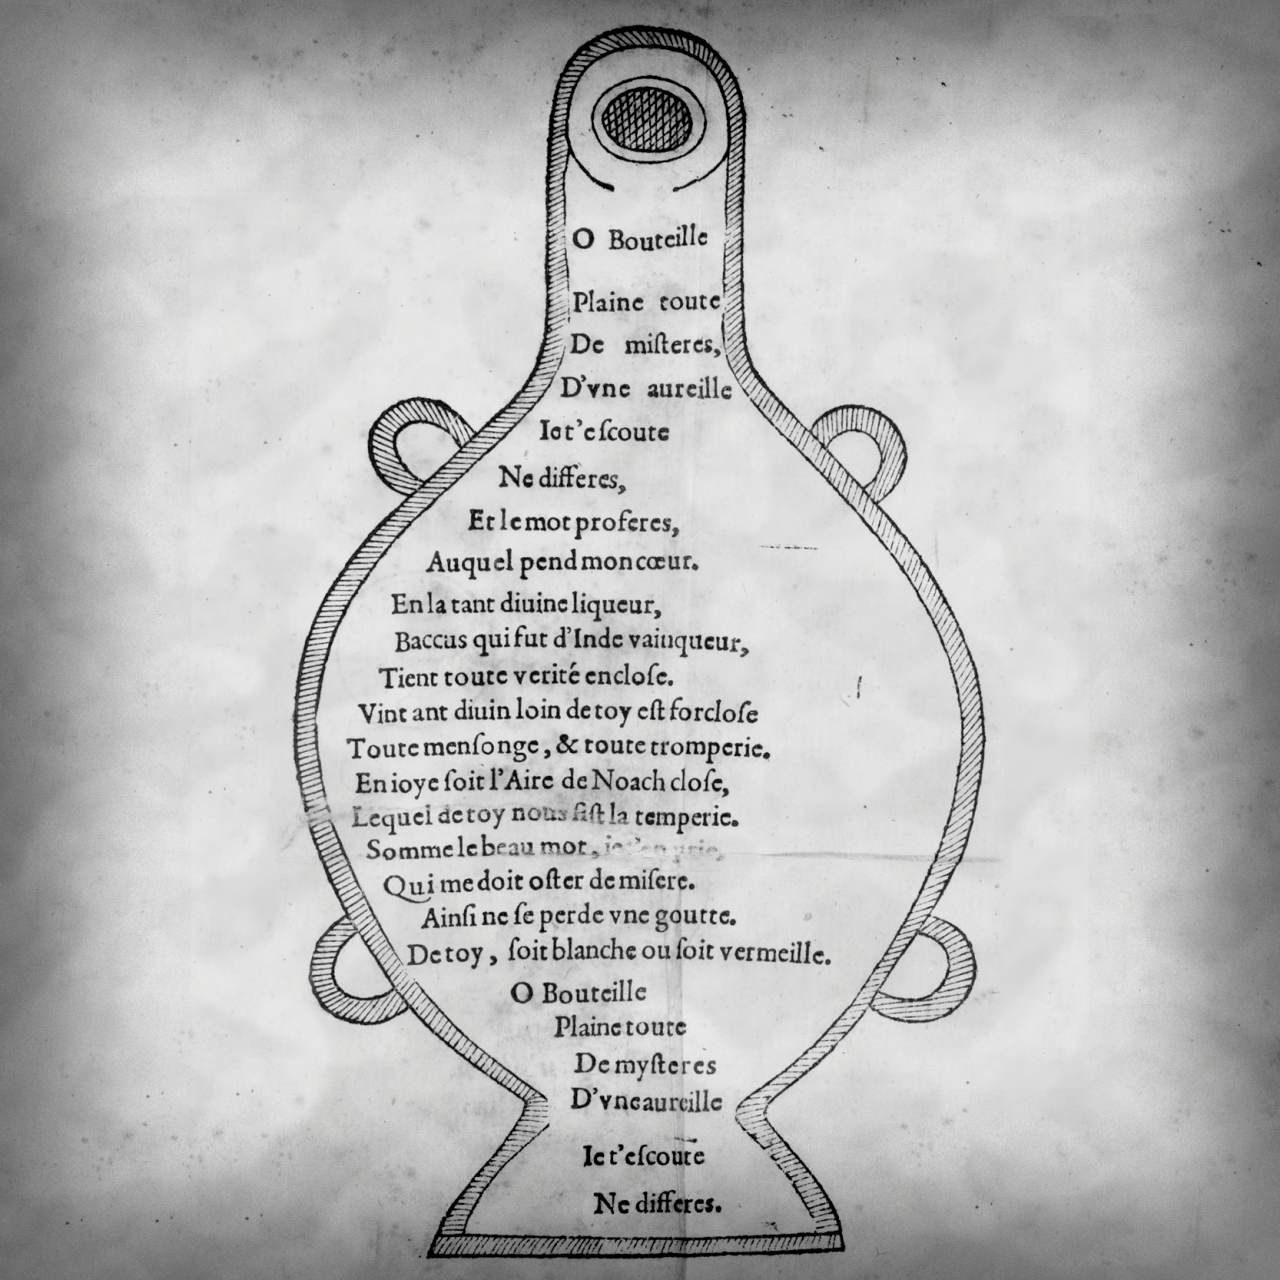 O Bouteille
Plaine toute
De miſteres,
D'vne aureille
Ie t'eſcoute
Ne differes,
Et le mot proferes,
Auquel pend mon cœur.
En la tant diuine liqueur,
Baccus qui fut d'Inde vainqueur,
Tient toute verité encloſe.
Vint ant diuin loin de toy eſt forcloſe
Toute menſonge, & toute tromperie.
En ioye ſoit l'Aire de Noach cloſe,
Lequel de toy nous fiſt la temperie.
Somme le beau mot,
Qui me doit oſter de miſere.
Ainſi ne ſe perde vne goutte.
De toy, ſoit blanche ou ſoit vermeille.
O Bouteille
Plaine toute
De myſteres
D'vne aureille
Ie t'eſcoute
Ne differes.